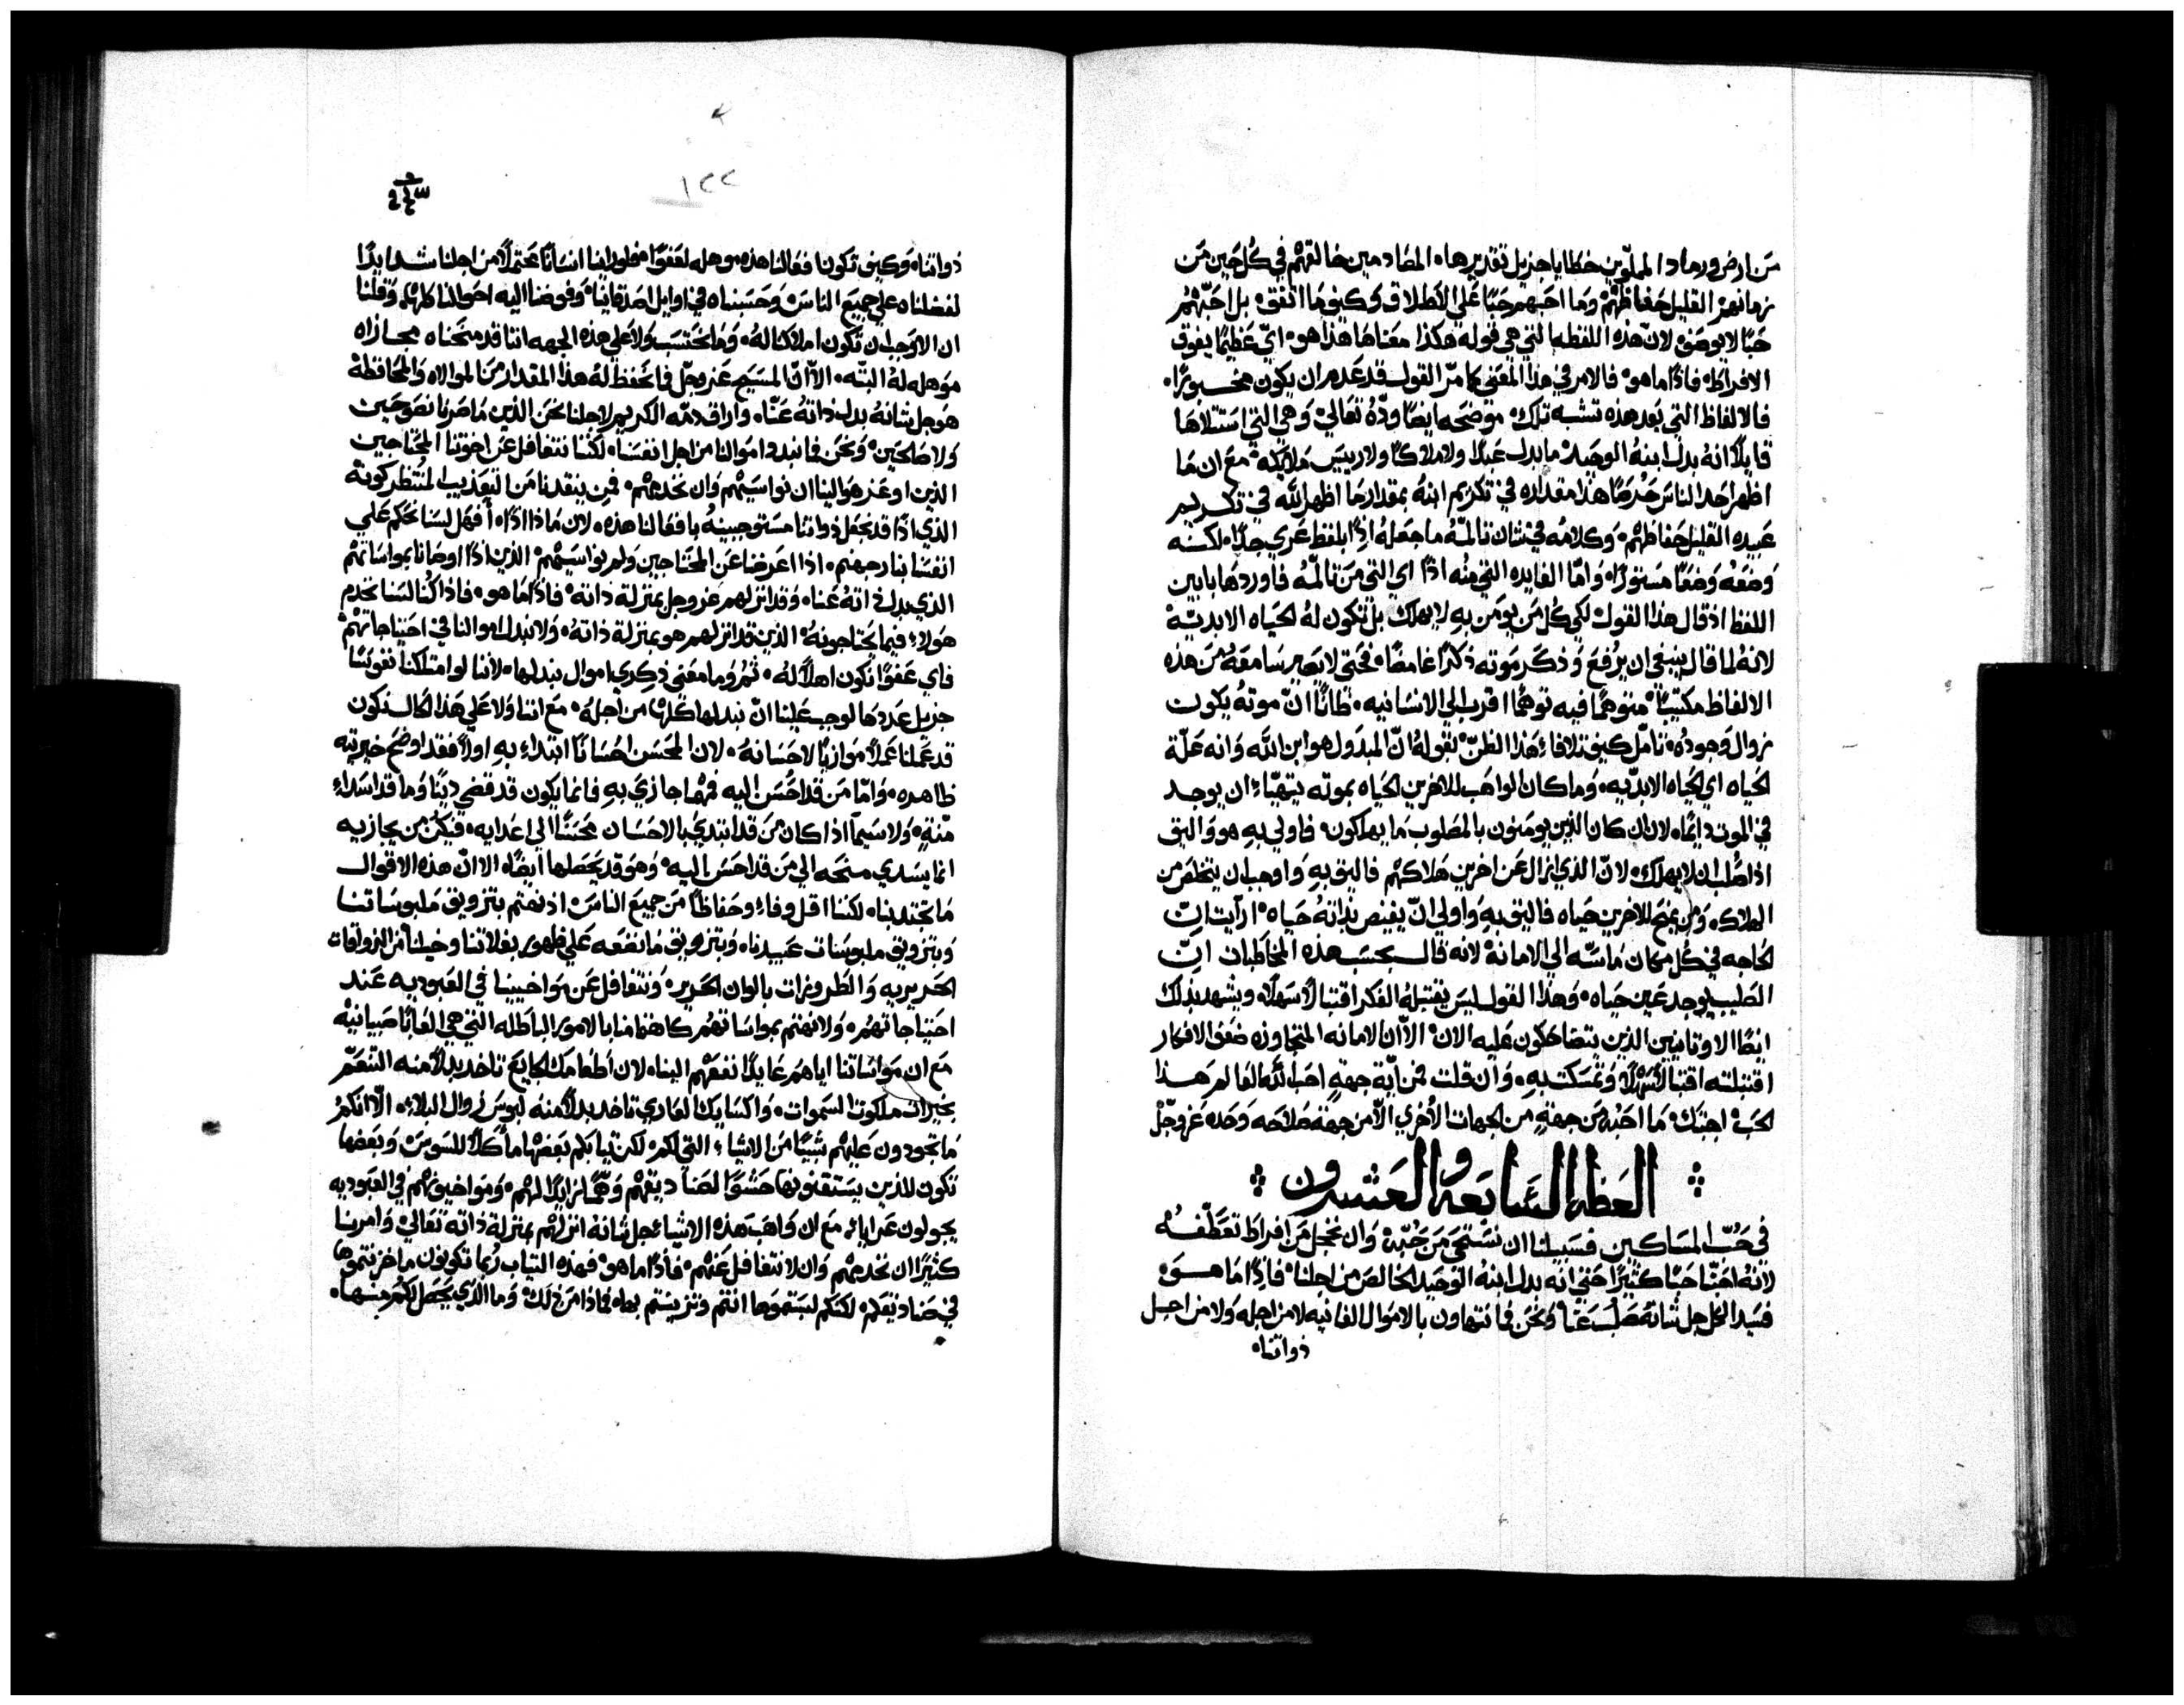 من ارض ورماد المملوين خطايا جزيل تقديرها. المصادمين خالقهم في كل حين من
زمانهم القليل حفاظهم وما احبهم حبًا على الاطلاق وكيف ما اتفق بل احبهم
حبًا لا يوصف لان هذه اللفظه التي هي قوله هكذا معناها هذا هو اي عظيمًا يفوق
الافراط فاذًا ما هو فالامر في هذا المعنى كما مرّ القول قد عدم ان يكون محسورًا.
فالالفاظ التي بعد هذه تشبه تلك موضحه ايضًا ودّه تعالى وهي التي استتلاها
قايلًا انه بدل ابنه الوحيد ما بدل عبدًا ولا ملاكًا ولا رييس ملايكه مع ان ما
اظهر احد الناس حرصًا هذا مقداره في تكريم ابنه بمقدار ما اظهر الله في تكريم
عبيده القليل حفاظهم وكلامه في شان تالمه ما جعله اذًا بلفظ عري جدًا لكنه
وضعه وضعًا مستورًا واما الفايده التي منه اذًا اي التي من تالمه فاوردها بابين
اللفظ اذ قال هذا القول لكي كل من يومن به لا يهلك بل تكون له الحياه الابديه
لانه لما قال ينبغي ان يرفع وذكر موته ذكرًا غامضًا فحتى لا يصير سامعه من هذه
الالفاظ مكتيبًا متوهمًا فيه توهمًا اقرب الى الانسانيه. ظانًا ان موته يكون
زوال وجوده تامل كيف تلافاء هذا الظن بقوله ان المبدول هو ابن الله وانه علة
الحياه اي الحياه الابديه. وما كان الواهب للاخرين الحياه بموته يتهياء ان يوجد
في الموت دايمًا. لان ان كان الذين يومنون بالمصلوب ما يهلكون فاولى به هو واليق
اذا صُلب ان لا يهلك لان الذي ازال عن اخرين هلاكهم فاليق به واوهب ان يتخلص من
الهلاك. ومن يمنح الاخرين حياه فاليق به واولى ان يفيض لذاته حياه ارايت ان
الحاجه في كل مكان ماسه الى الامانه لانه قال بحسب هذه المخاطبات ان
الصليب يوجد عين حياه وهذا القول ليس يقتبله الفكر اقتبالًا سهلًا ويشهد بذلك
ايضًا الاوتانيين الذين يتضاحكون عليه الان الا ان الامانه المتجاوزه ضعف الافكار
اقتبلته اقتبالًا سهلًا وتمسكت به. وان قلت فمن اية جهة احب الله العالم هذا
الحب اجبتك ما احبه من جهةٍ من الجهات الاخرى الا من جهة صلاحه وحده عز وجل
العظه السابعه والعشرون
في حب المساكين فسبيلنا ان نستحي من حُبّه وان نخجل من افراط تعطفه
لانه احبّنا حبًا كثيرًا حتى انه بدل ابنه الوحيد الخالص من اجلنا فاذًا ما هو
فسيد الكل جل شانه صلب عنا ونحن فما نتهاون بالاموال الفانيه لا من اجله ولا من اجل
ذواتنا.
١٢٢
ذواتنا. وكيف تكون فعالنا هذه. وهله لعفوًا فلو راينا انسانًا محتملًا من اجلنا شدايدًا
لفضلناه على جميع الناس وحسبناه في اوايل اصدقاينا وفوضنا اليه احوالنا كلها وقلنا
ان الاوجب ان تكون املاكنا له وما نحتسب ولا على هذه الجهه اننا قد منحناه مجازاه
موهله له البته. الا ان المسيح عز وجل فما نحفظ له هذا المقدار من الموالاه والمحافظة
هو جل شانه بدل ذاته عنا. واراق دمه الكريم لاجلنا نحن الذين ما صرنا نصوحين
ولا صالحين ونحن فما نبدل اموالنا من اجل انفسنا. لكننا نتغافل عن اخوتنا المحتاجين
الذين اوعز هو الينا ان نواسيهم وان نخدمهم فمن ينقدنا من التعذيب المنتظر كونه
الذي اذًا قد نجعل ذواتنا مستوجبينه بافعالنا هذه. لان ماذا اذًا. أفهل لسنا نحكم على
انفسنا بنار جهنم. اذا اعرضنا عن المحتاجين ولم نواسيهم الذين اذًا اوصانا بمواساتهم
الذي بدل ذاته عنا. وقد انزلهم عز وجل بمنزلة ذاته فاذًا ما هو. فاذا كنا لسنا نخدم
هولاء فيما يحتاجونه الذين قد انزلهم هو بمنزلة ذاته ولا نبدل اموالنا في احتياجاتهم
فاي عفوًا نكون اهلًا له. ثم وما معنى ذكري اموال نبدلها. لاننا لو امتلكنا نفوسًا
جزيل عددها لوجب علينا ان نبدلها كلها من اجله مع اننا ولا على هذا الحال نكون
قد عملنا عملًا موازيًا لاحسانه. لان المحسن احسانًا ابتداء به اولًا فقد اوضح خيريته
ظاهره. واما من قد احسن اليه فمهما جازي به فانما يكون قد قضى دينًا وما قد اسداء
منةٍ. ولا سيما اذا كان من قد ابتدي بالاحسان محسنًا الى اعدايه. فيكن من يجازيه
انما يسدي منحه الى من قد احسن اليه وهو قد يحصلها ايضًا. الا ان هذه الاقوال
ما تجتدبنا. لكننا اقل وفاء وحفاظًا من جميع الناس اذ نهتم بتزويق ملبوساتنا
وبتزويق ملبوسات عبيدنا. وبتزويق ما نضعه على ظهور بغلاتنا وخيلنا من الزواقات
الحريريه والطروزات بالوان الحرير ونتغافل عن مواخيينا في العبوديه عند
احتياجاتهم. ولا نهتم بمواساتهم كاهتمامنا بالامور الباطله التي هي العابًا صبيانيه
مع ان مواساتنا اياهم عايدًا نفعهم الينا. لان اطعامك الجايع تاخد بدلًا منه التنعم
بخيرات ملكوت السموات. واكسايك العاري تاخد بدلًا منه لبوس زوال البلاء. الا انكم
ما تجودون عليهم شييًا من الاشياء التي لكم لكن ثيابكم بعضها ماكلًا للسوس وبعضها
تكون للذين يستقنونها حشوًا لصناديقهم وهمًا زايدًا لهم ومواخيهم في العبوديه
يجولون عرايا. مع ان واهب هذه الاشياء جل شانه انزلهم بمنزلة ذاته تعالى وامرنا
كثيرًا ان نخدمهم وان لا نتغافل عنهم فاذًا ما هو فهذه التياب ربما تكونون ما خزنتموها
في صناديقكم لكنكم لبستموها انتم وتزينتم بها. فماذا من ذلك وما الذي يحصل لكم منها.